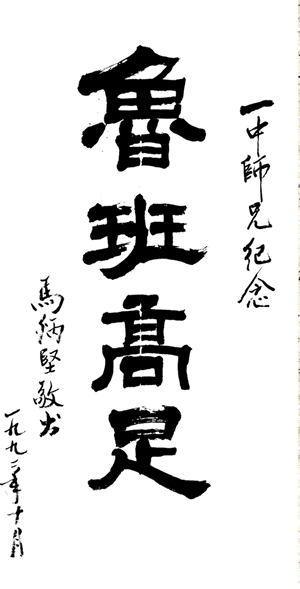 一中師兄紀念
魯班髙足
馬炳堅敬书
一九九二年十月